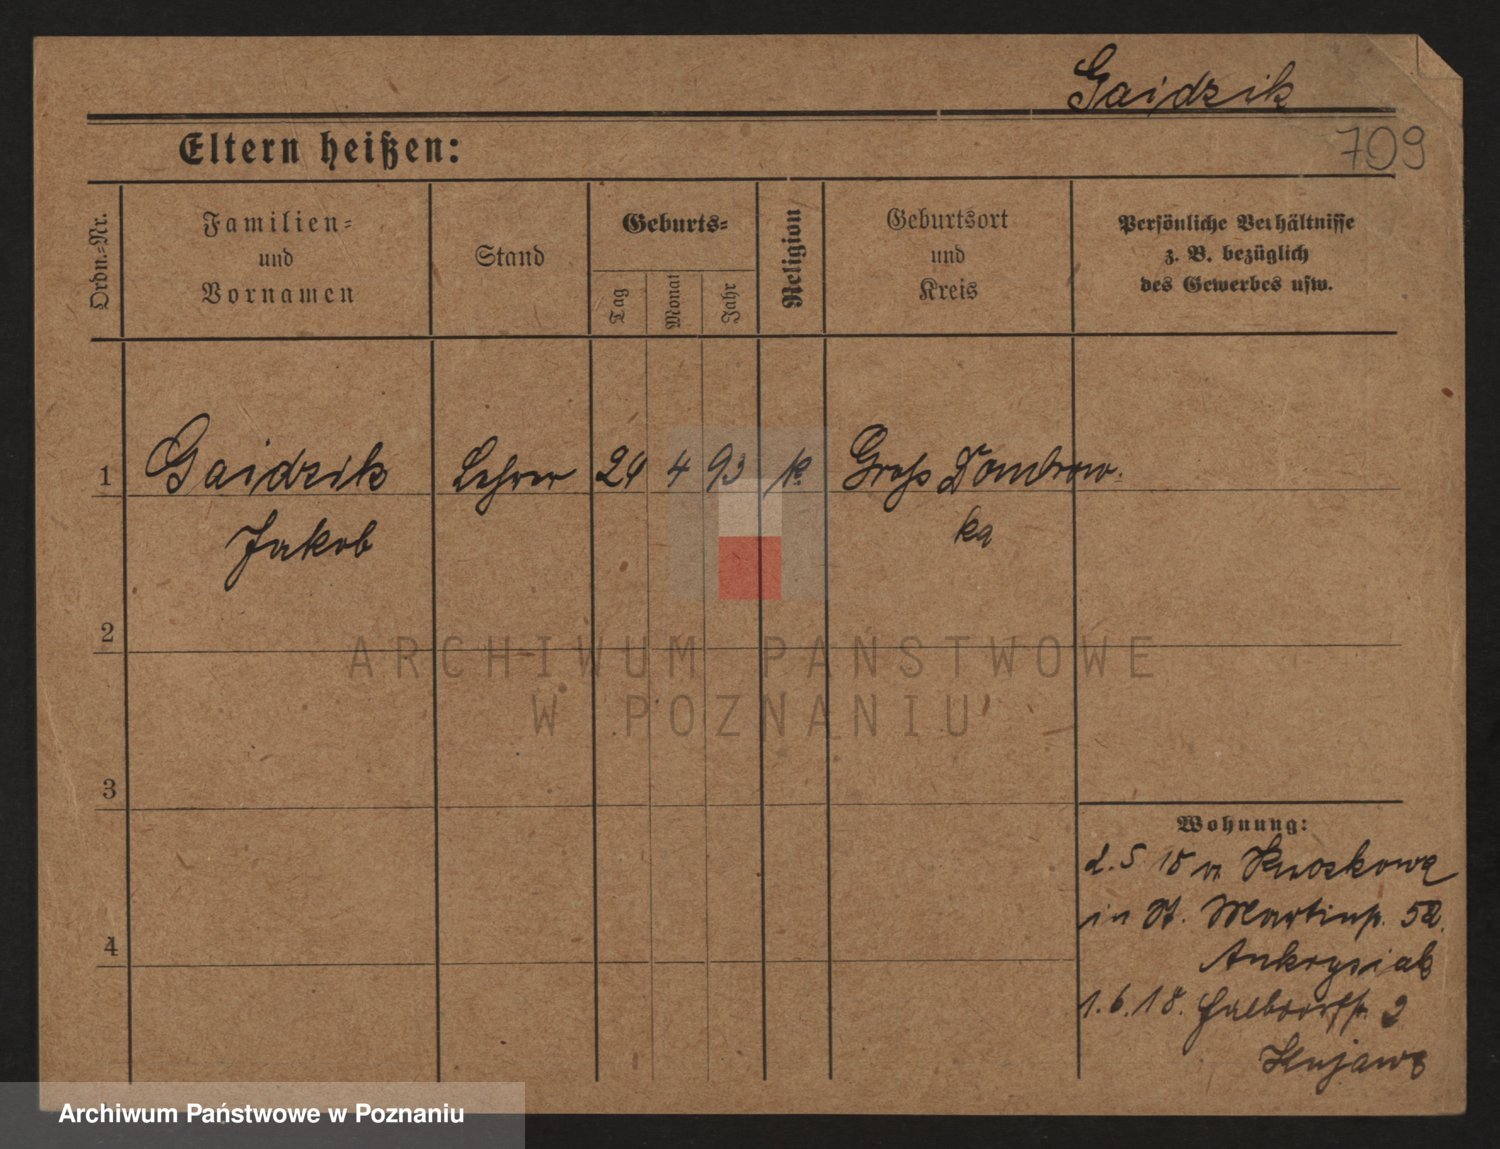 Gaidzik
709
Eltern heißen:
Ordn.-Nr.
Familien-
und
Vornamen
Stand
Geburts-
Tag
Monat
Jahr
Religion
Geburtsort
und
Kreis
Persönliche Verhältnisse
z. B. bezüglich
des Gewerbes usw.
1
Gaidzik
Lehrer
4
93
k
Groß Dombrow-
Jakob
ka
2
ARCHIWUM PAŃSTWOWE
W POZNANIU
3
Wohnung:
in St. Martinstr. 52.
4
1.6.18.
2
Kujawa
Archiwum Państwowe w Poznaniu